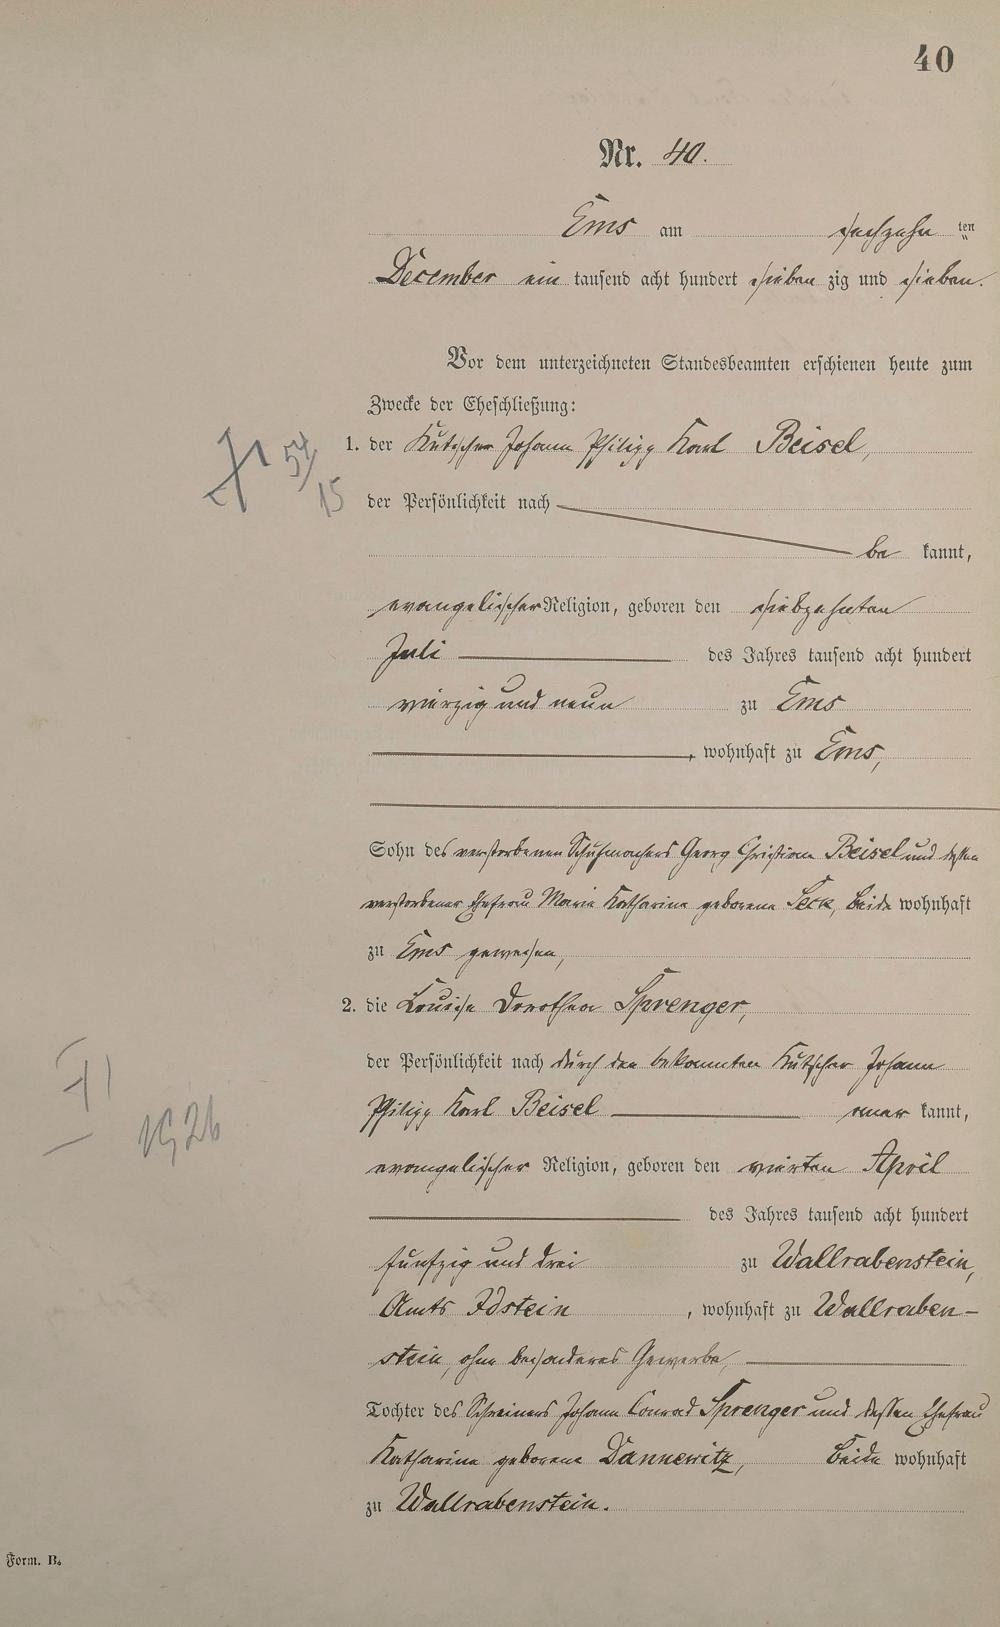 40
Nr. 40.
Ems am sechzehn ten
December ein tausend acht hundert sieben zig und sieben.
Vor dem unterzeichneten Standesbeamten erschienen heute zum
Zwecke der Eheschließung:
1. der Kutscher Johann Philipp Karl Beisel,
der Persönlichkeit nach
be kannt,
evangelischer Religion, geboren den siebzehnten
Juli des Jahres tausend acht hundert
vierzig und neun zu Ems
, wohnhaft zu Ems,
Sohn des verstorbenen Schuhmachers Georg Christian Beisel und dessen
verstorbener Ehefrau Maria Katharina geborene Seck, beide wohnhaft
zu Ems gewesen,
2. die Louise Dorothea Sprenger,
der Persönlichkeit nach durch den bekannten Kutscher Johann
Philipp Karl Beisel aner kannt,
evangelischer Religion, geboren den vierten April
des Jahres tausend acht hundert
fünfzig und drei zu Wallrabenstein,
Amts Idstein , wohnhaft zu Wallraben-
stein, ohne besonderes Gewerbe,
Tochter des Schreiners Johann Conrad Sprenger und dessen Ehefrau
Katharina geborene Dannewitz, beide wohnhaft
zu Wallrabenstein.
Form. B.